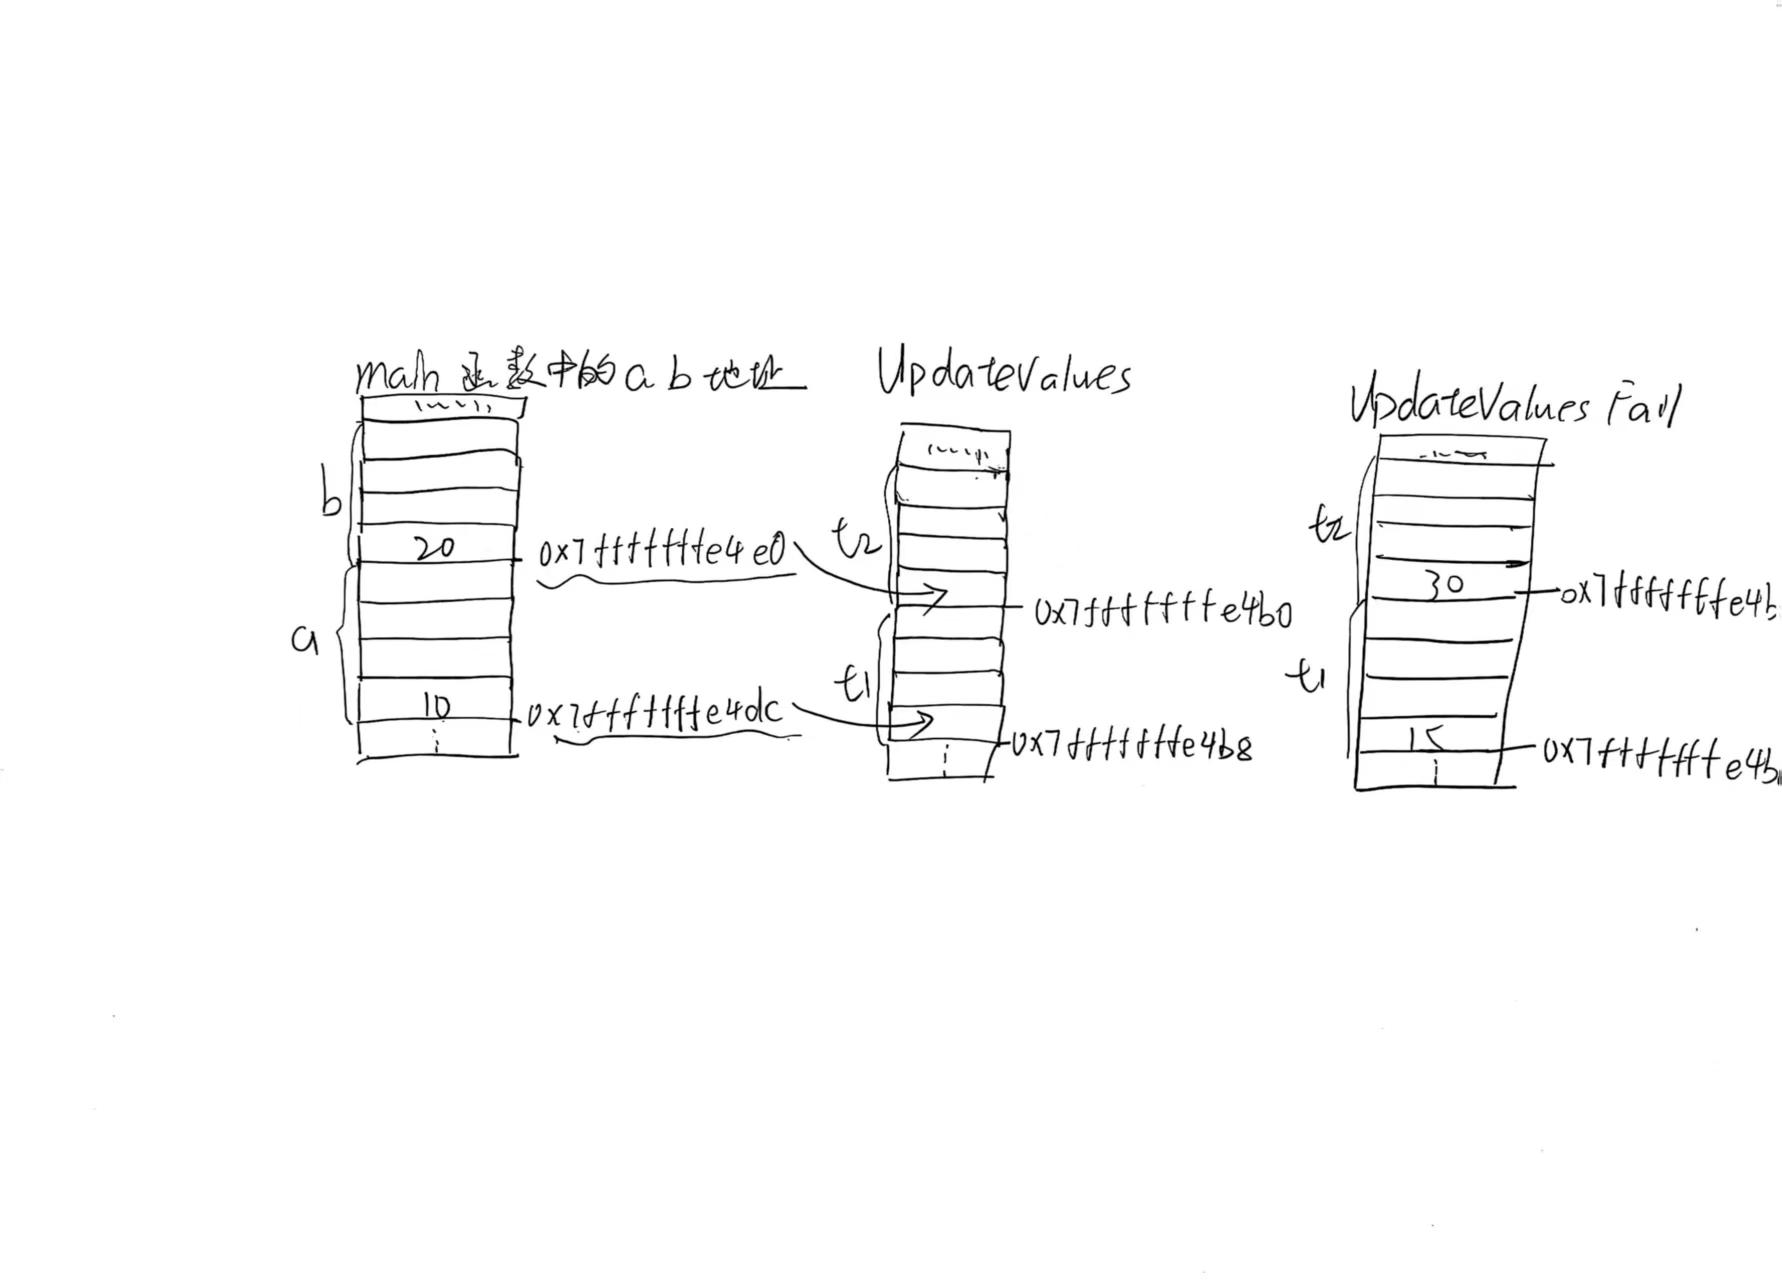 main 函数中的 a b 地址
UpdateValues
UpdateValues Fail
b
20
0x7fffffffe4e0
t2
0x7fffffffe4b0
t2
30
0x7fffffffe4b
a
10
0x7fffffffe4dc
t1
0x7fffffffe4b8
t1
15
0x7fffffffe4b